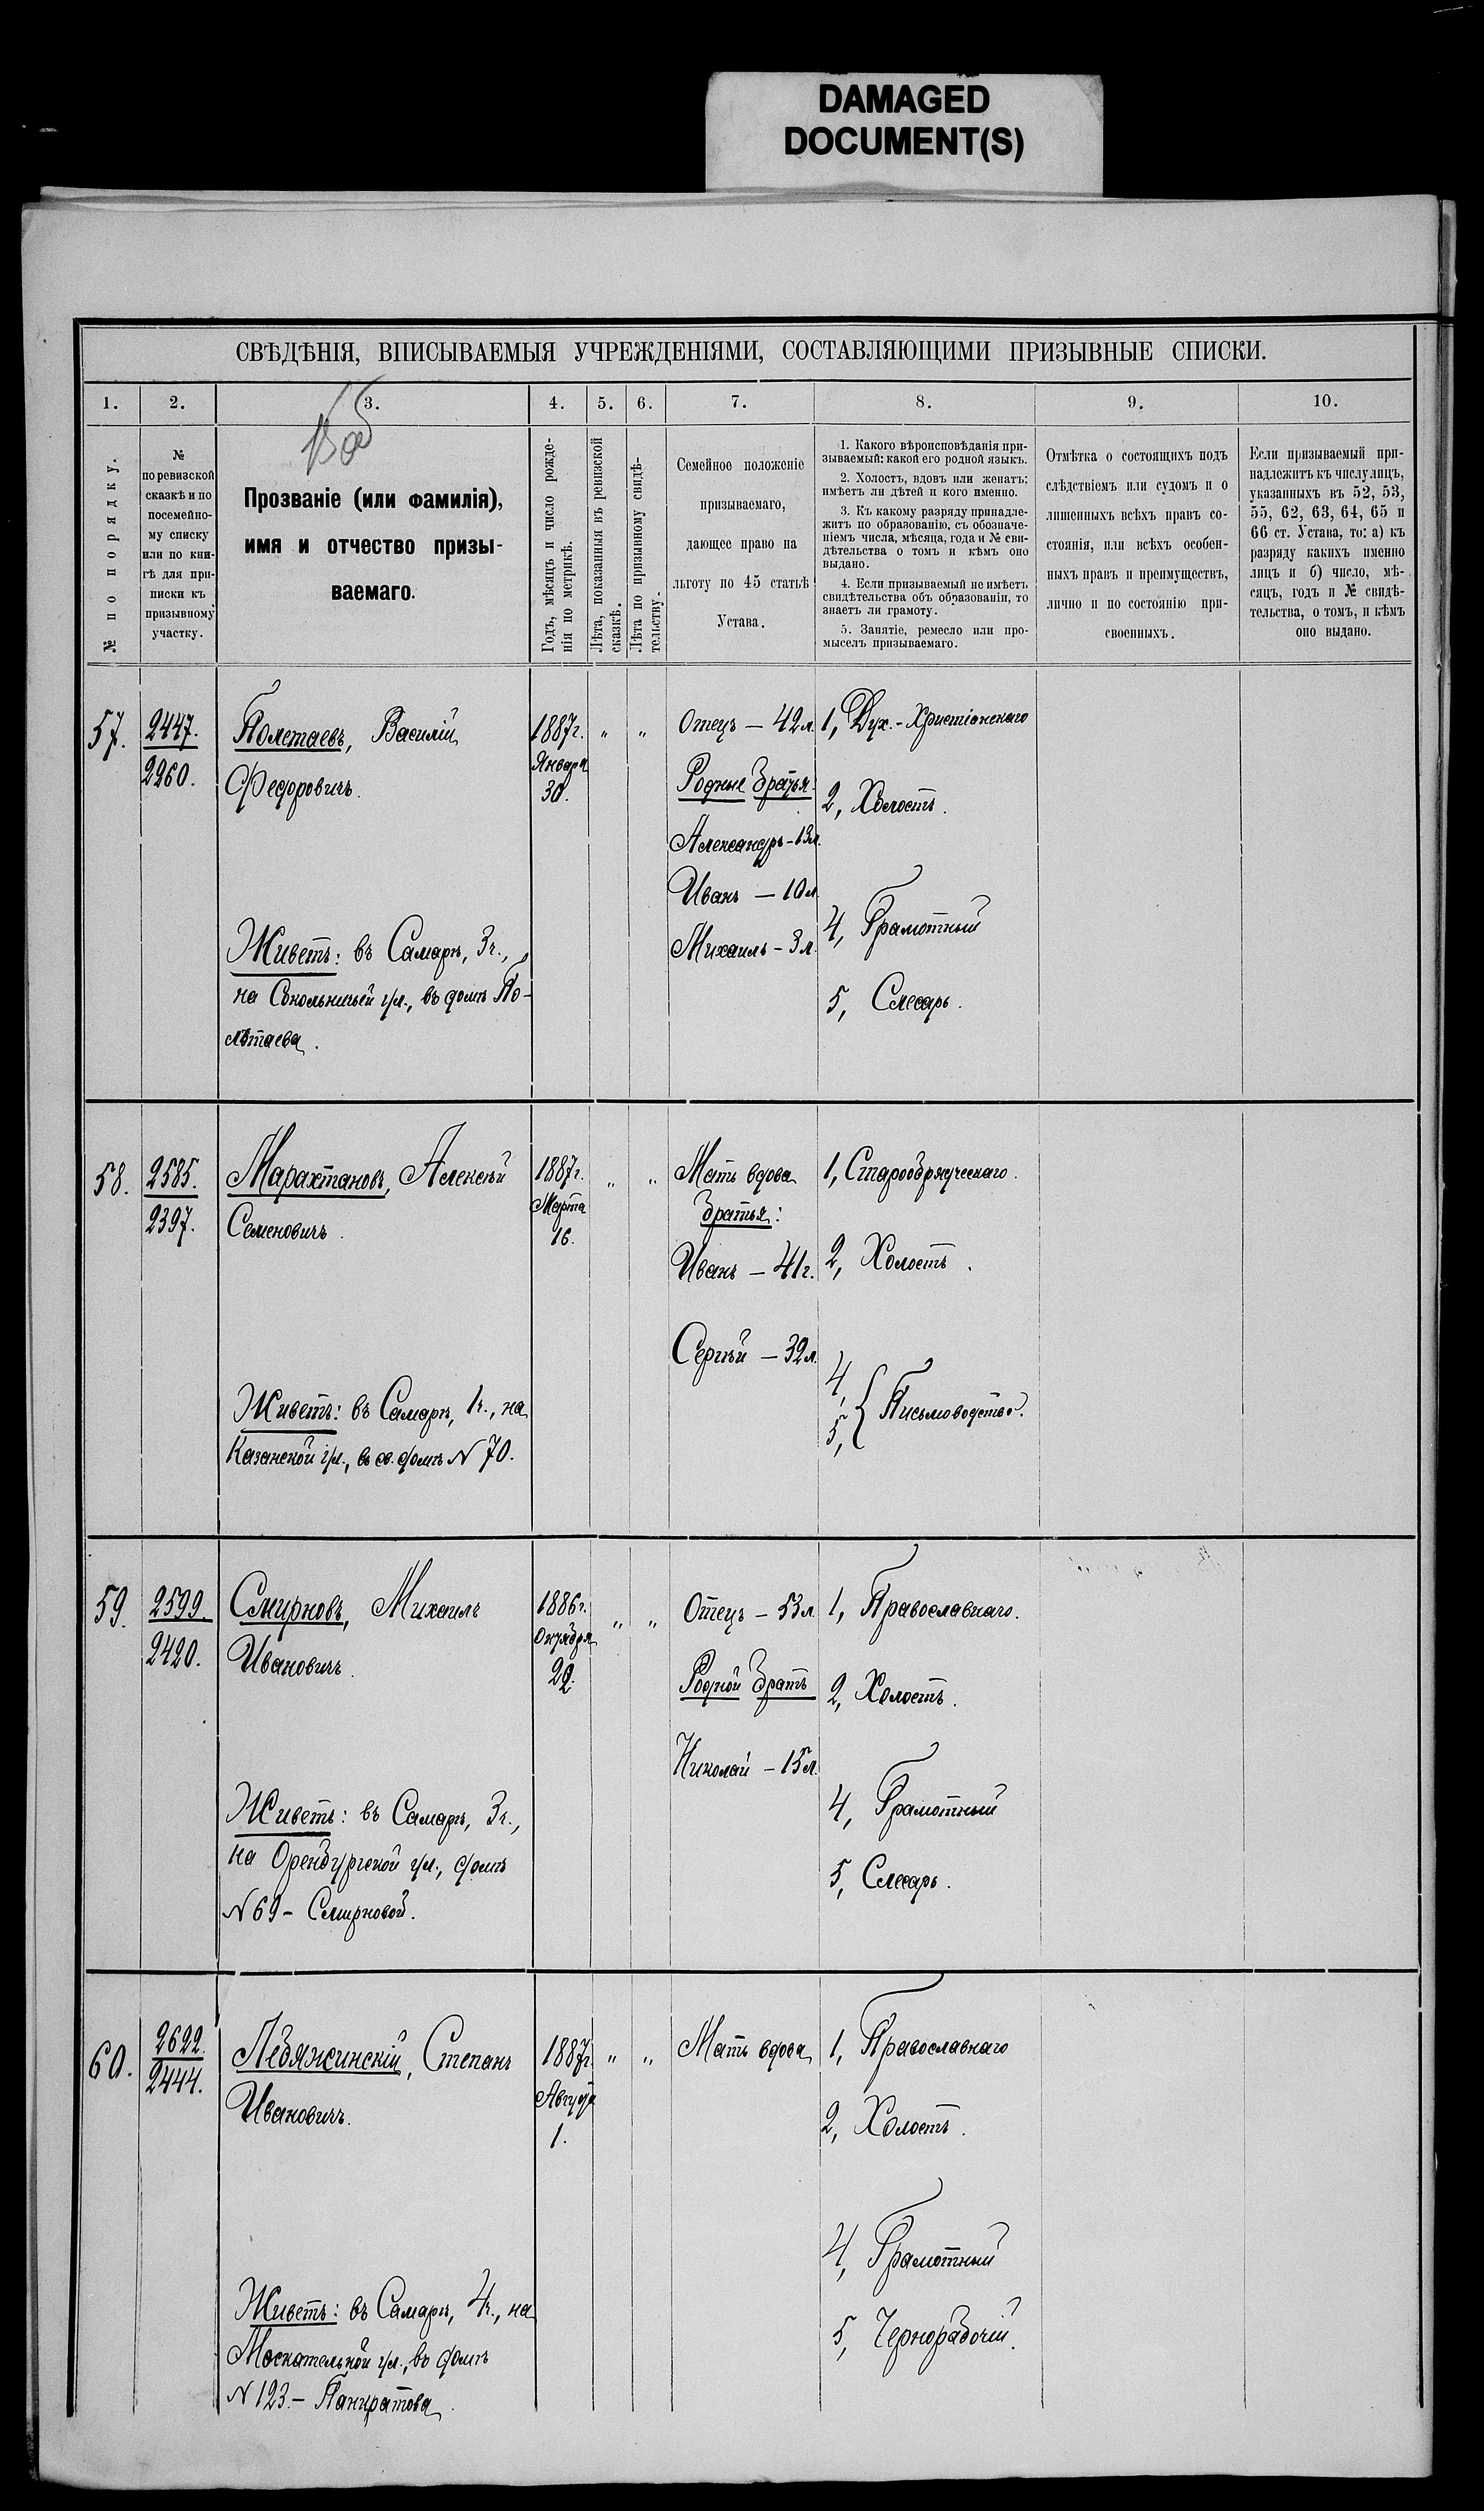 DAMAGED
DOCUMENT(S)
СВѢДѢНІЯ, ВПИСЫВАЕМЫЯ УЧРЕЖДЕНІЯМИ, СОСТАВЛЯЮЩИМИ ПРИЗЫВНЫЕ СПИСКИ.
1.
2.
3.
4.
5.
6.
7.
8.
9.
10.
№ по порядку.
№
по ревизской
сказкѣ и по
посемейно-
му списку
или по кни-
гѣ для при-
писки къ
призывному
участку.
Прозваніе (или фамилія),
имя и отчество призы-
ваемаго.
Годъ, мѣсяцъ и число рожде-
нія по метрикѣ.
Лѣта, показанныя въ ревизской
сказкѣ.
Лѣта по призывному свидѣ-
тельству.
Семейное положеніе
призываемаго,
дающее право на
льготу по 45 статьѣ
Устава.
1. Какого вѣроисповѣданія при-
зываемый: какой его родной языкъ.
2. Холостъ, вдовъ или женатъ;
имѣетъ ли дѣтей и кого именно.
3. Къ какому разряду принадле-
житъ по образованію, съ обозначе-
ніемъ числа, мѣсяца, года и № сви-
дѣтельства о томъ и кѣмъ оно
выдано.
4. Если призываемый не имѣетъ
свидѣтельства объ образованіи, то
знаетъ ли грамоту.
5. Занятіе, ремесло или про-
мыселъ призываемаго.
Отмѣтка о состоящихъ подъ
слѣдствіемъ или судомъ и о
лишенныхъ всѣхъ правъ со-
стоянія, или всѣхъ особен-
ныхъ правъ и преимуществъ,
лично и по состоянію при-
своенныхъ.
Если призываемый при-
надлежитъ къ числу лицъ,
указанныхъ въ 52, 53,
55, 62, 63, 64, 65 и
66 ст. Устава, то: а) къ
разряду какихъ именно
лицъ и б) число, мѣ-
сяцъ, годъ и № свидѣ-
тельства, о томъ, и кѣмъ
оно выдано.
57.
2447.
2260.
Полетаевъ, Василій
Федоровичъ.
Живетъ: въ Самарѣ, 3ч.,
на Сокольничьей ул., въ домѣ По-
лѣтаева.
1887г.
Января
30.
"
"
Отецъ — 42 л.
Родные братья:
Александръ - 13л.
Иванъ — 10 л
Михаилъ - 3 л.
1, Дух.-Христіанскаго
2, Холостъ.
4, Грамотный
5, Слесарь.
58.
2585.
2397.
Марахтановъ, Алексѣй
Семеновичъ.
Живетъ: въ Самарѣ, 1ч., на
Казанской ул., въ св. домѣ N 70.
1887г.
Марта
16.
"
"
Мать вдова
Братья:
Иванъ — 41г.
Сергѣй — 32л.
1, Старообрядческаго.
2, Холостъ.
4,
5, { Письмоводство.
59.
2599.
2420.
Смирновъ, Михаилъ
Ивановичъ.
Живетъ: въ Самарѣ, 3ч.,
на Оренбургской ул., домъ
N 69 - Смирновой.
1886г.
Октября
22.
"
"
Отецъ - 53л
Родной братъ
Николай - 15л.
1, Православнаго.
2, Холостъ.
4, Грамотный
5, Слесарь.
60.
2622.
2444.
Лебяжинскій, Степанъ
Ивановичъ.
Живетъ: въ Самарѣ, 4ч., на
Москательной ул., въ домѣ
N 123.- Панкратова.
1887г.
Августа
1.
"
"
Мать вдова
1, Православнаго
2, Холостъ.
4, Грамотный
5, Чернорабочій.